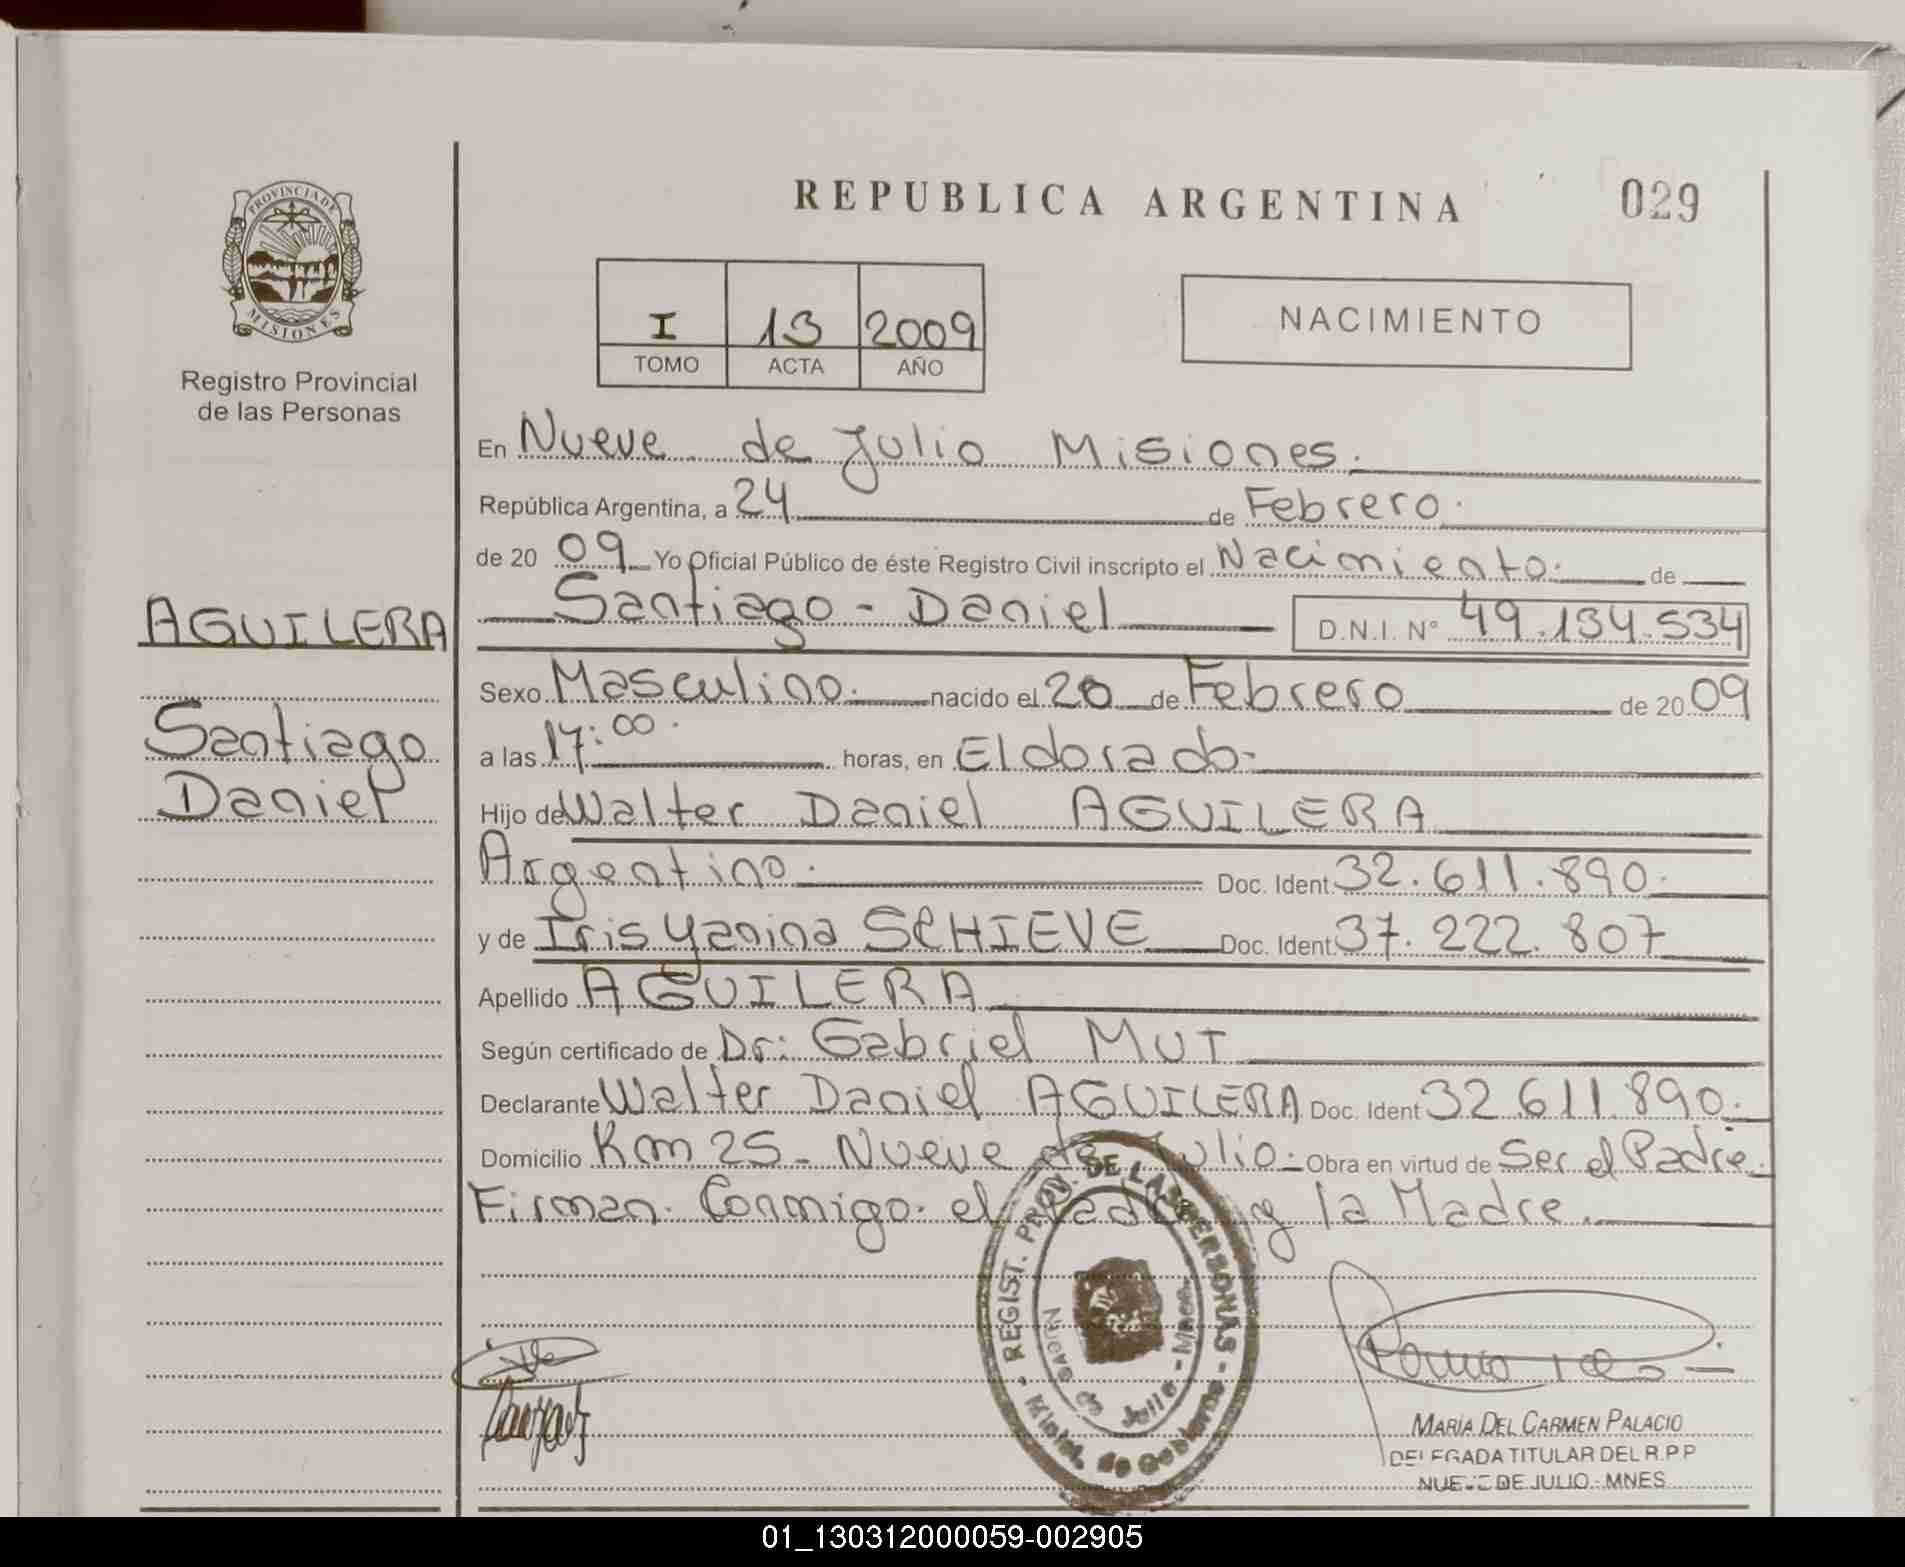 REPUBLICA ARGENTINA
029
PROVINCIA DE
MISIONES
Registro Provincial
de las Personas
I 13 2009
TOMO ACTA AÑO
NACIMIENTO
En Nueve de Julio Misiones.
República Argentina, a 24 de Febrero.
de 20 09 Yo Oficial Público de éste Registro Civil inscripto el Nacimiento. de
Santiago - Daniel D.N.I. N° 49.134.534
AGUILERA
Santiago
Daniel
Sexo Masculino. nacido el 20 de Febrero de 20 09
a las 17:00. horas, en Eldorado.
Hijo de Walter Daniel AGUILERA
Argentino. Doc. Ident. 32.611.890.
y de Iris Yanina SCHIEVE Doc. Ident. 37.222.807
Apellido AGUILERA
Según certificado de Dr: Gabriel MUT
Declarante Walter Daniel AGUILERA Doc. Ident 32 611.890.
Domicilio Km 25 - Nueve de Julio. Obra en virtud de Ser el Padre.
Firman. Conmigo. el Padre y la Madre.
- REGIST. PROV. DE LAS PERSONAS -
Minist. de Gobierno
Nueve de Julio - Mnes.
MARIA DEL CARMEN PALACIO
DELEGADA TITULAR DEL R.P.P
NUEVE DE JULIO - MNES
01_130312000059-002905